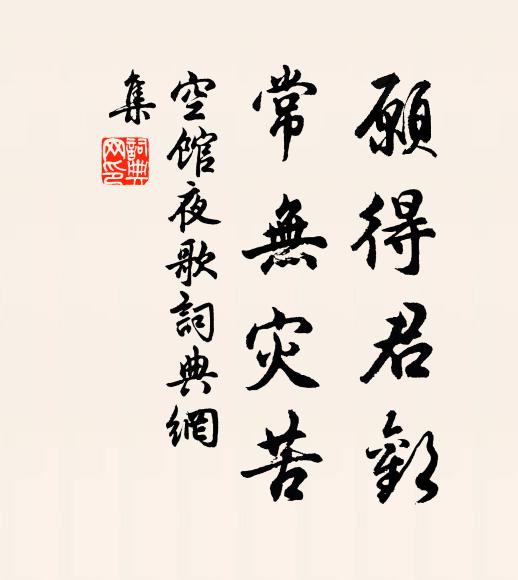 願得君歡
常無災苦
空館夜歌詞典網
集
詞典網印